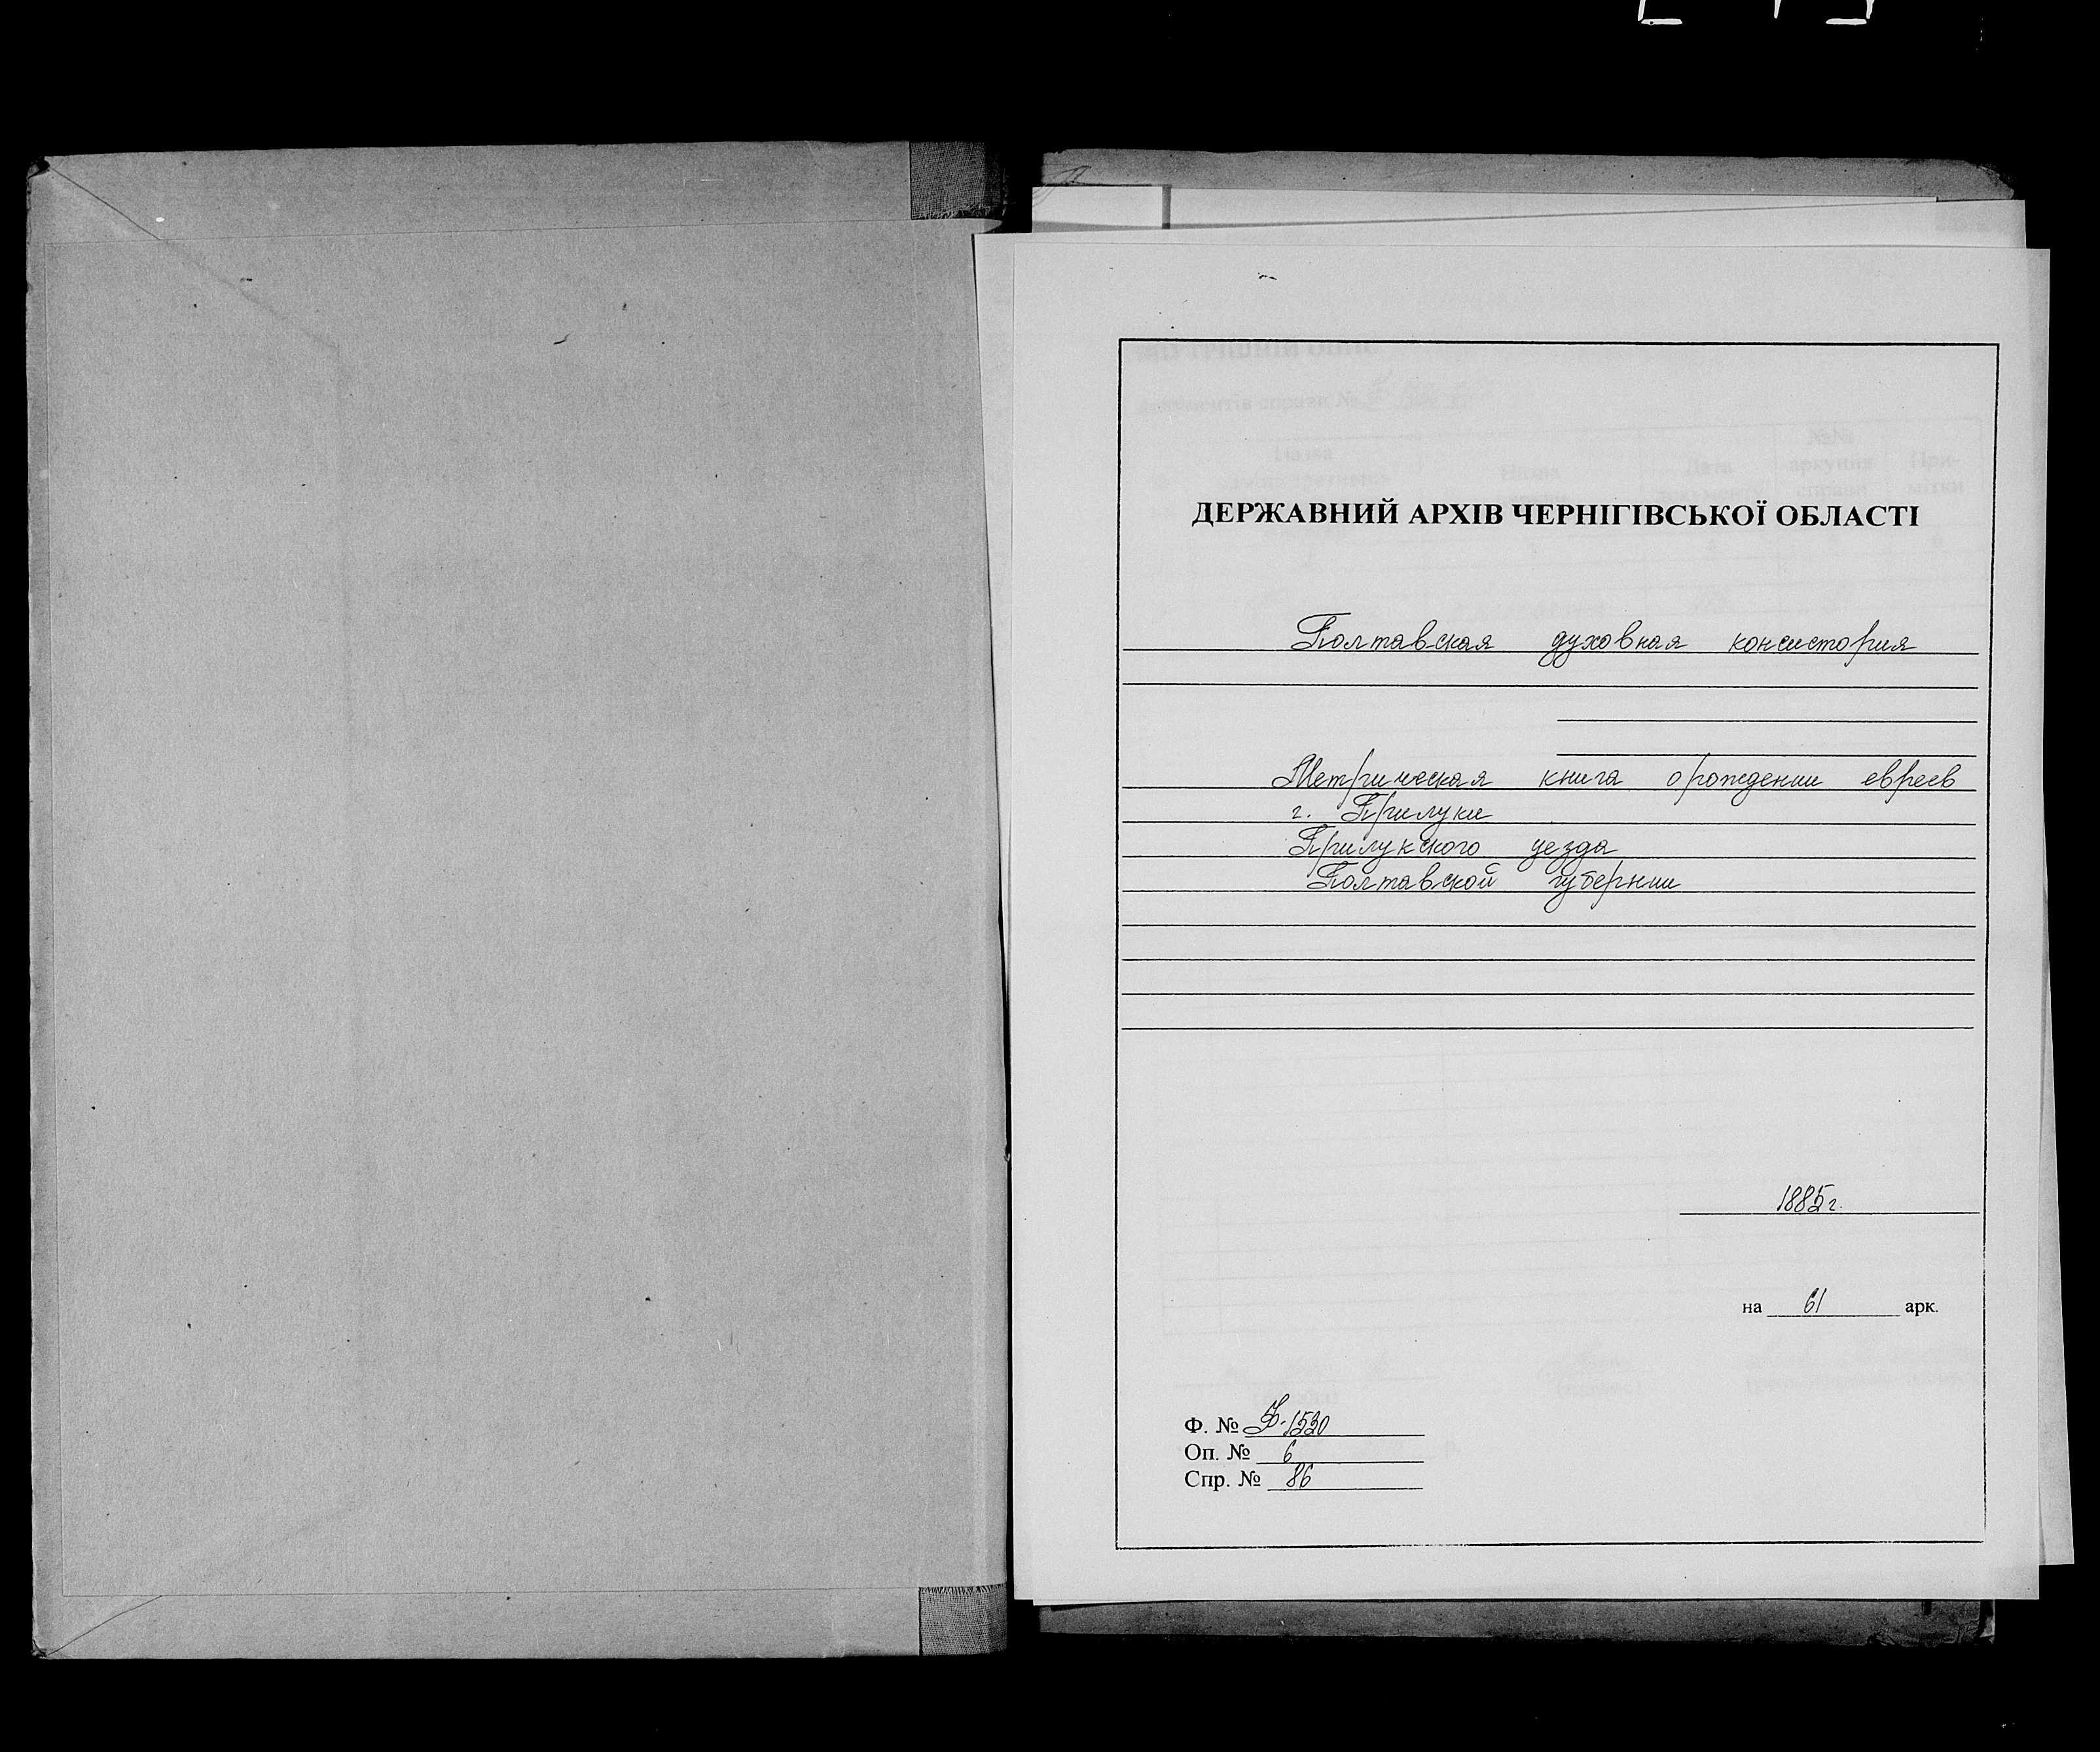 ДЕРЖАВНИЙ АРХІВ ЧЕРНІГІВСЬКОЇ ОБЛАСТІ
Полтавская духовная консистория
Метрическая книга о рождении евреев
г. Прилуки
Прилукского уезда
Полтавской губернии
1885г.
на 61 арк.
Ф. № Ф-1520
Оп. № 6
Спр. № 86